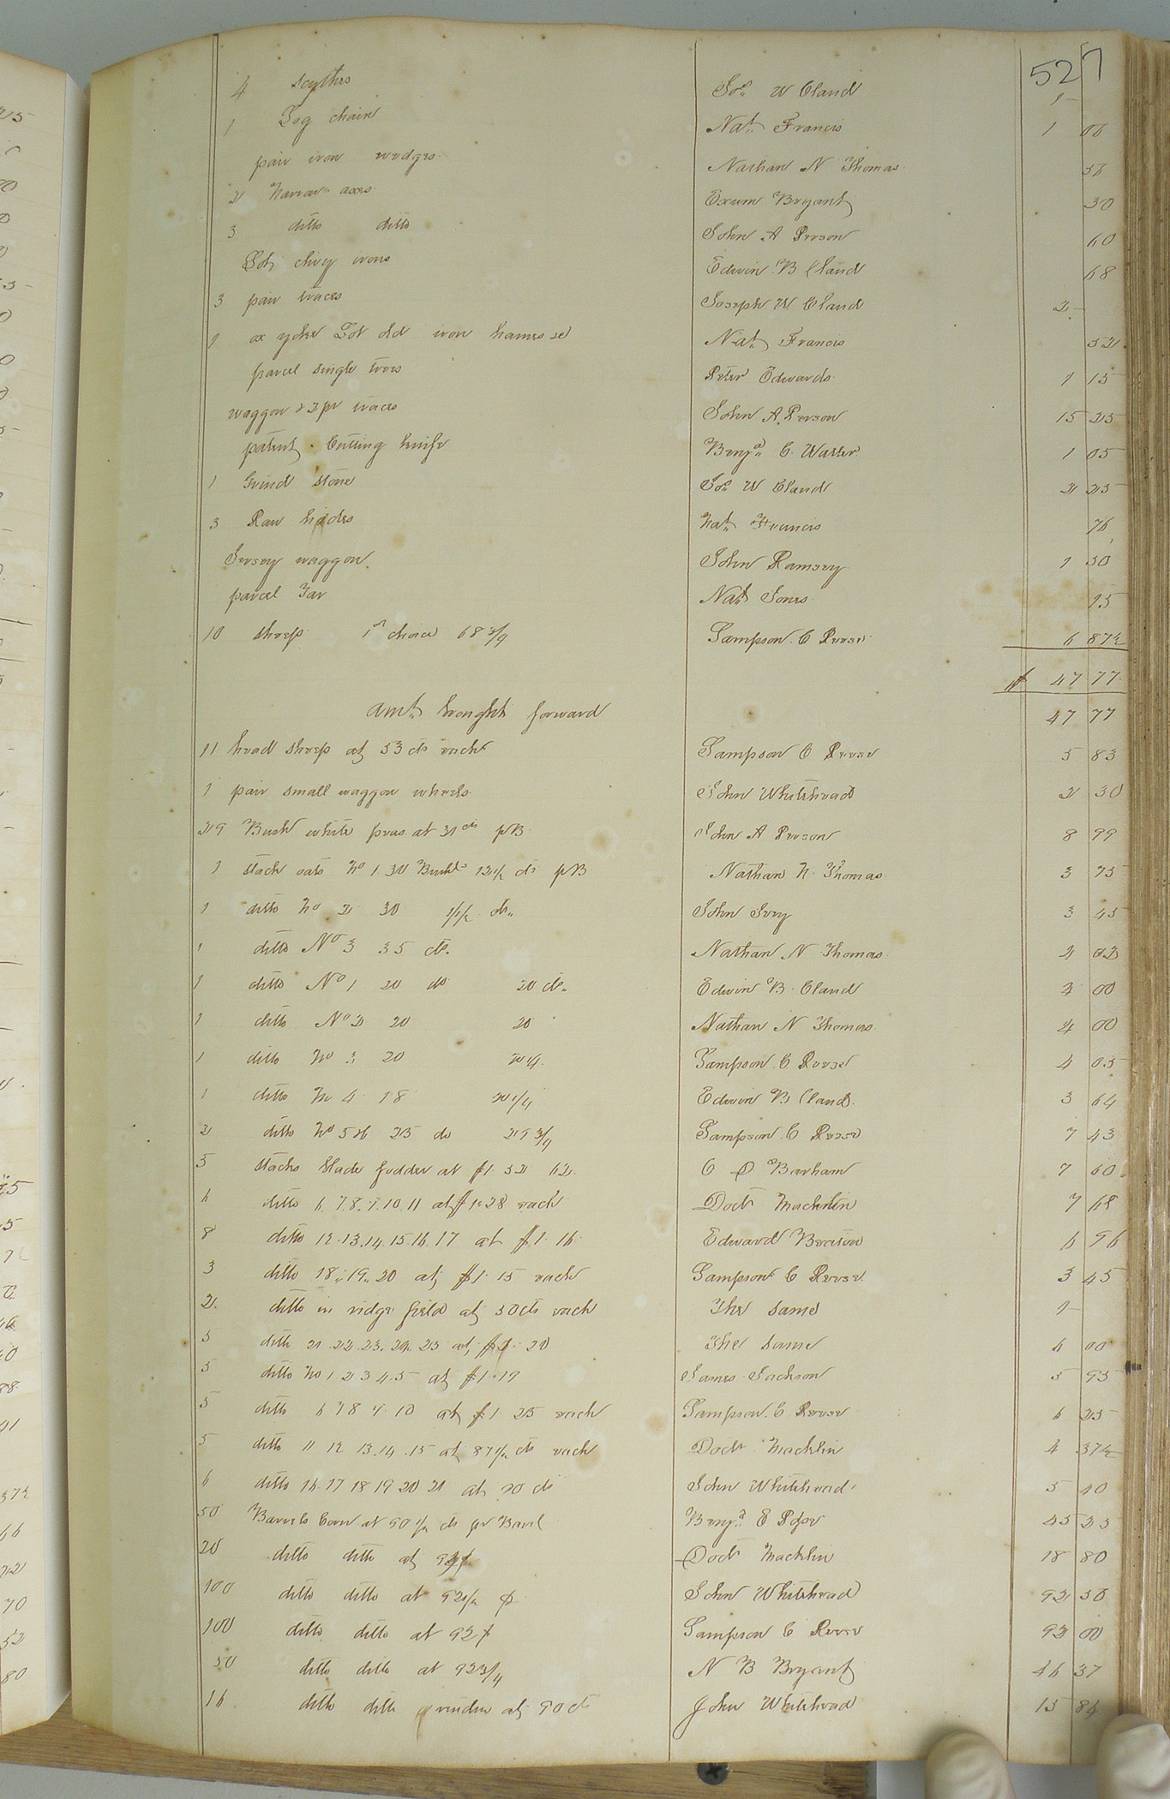 527
4 Scythes Jos. W Claud 1 -
1 Log chain Nat. Francis 1 06
pair iron wedges Nathan N Thomas 56
2 Narrow axes Exum Bryant 30
3 ditto ditto John A Person 60
Lot chey irons Edwin B Claud 68
3 pair traces Joseph W Claud 2 -
1 ox yoke Lot old iron hames &c Nat. Francis 52
parcel single trees Peter Edwards 1 15
waggon & 3 pr traces John A. Person 15 25
patent Cutting knife Benja. C. Waller 1 05
1 Grind stone Jos. W Claud 2 25
3 Raw hides Nat. Francis 76
Jersey waggon John Ramsey 1 50
parcel Tar Nat Jones 15
10 sheep 1st choice 68 3/4 Sampson C Reese 6 87½
$ 47 77
Amt. brought forward 47 77
11 head sheep at 53 cts each Sampson C Reese 5 83
1 pair small waggon wheels John Whitehead 2 30
29 Bush white peas at 31 cts pB John A Person 8 99
1 stack oats No 1 30 Bush 12½ cts pB Nathan N. Thomas 3 75
1 ditto No 2 30 John Ivey 3 45
1 ditto No 3 35 cts. Nathan N Thomas
1 ditto No 1 20 do 20 cts. Edwin B. Claud 4 00
1 ditto No 2 20 20 Nathan N Thomas 4 00
1 ditto No 3 20 Sampson C Reese 4 05
1 ditto No 4 18 20 1/4 Edwin B Claud 3 64
2 ditto No 5 & 6 25 do 29 3/4 Sampson C Reese 7 43
5 stacks blade fodder at $1 52 C D Barham 7 60
6 ditto 6. 7. 8. 9. 10. 11 at $1.28 each Doct Macklin 7 68
ditto 12.13.14.15.16.17 at $1.16 Edward 6 96
3 ditto 18. 19. 20 at $1.15 each Sampson C Reese 3 45
2 ditto in ridge field at 50 cts each The same 1 -
5 ditto 21. 22. 23. 24. 25 at $1.20 The same 6 00
5 ditto No 1 2 3 4 5 at $1.19 James Jackson 5 95
5 ditto 6 7 8 9 10 at $1 25 each Sampson C Reese 6 25
5 ditto 11 12 13.14.15 at 87½ cts each Doct Macklin 4 37½
6 ditto 16.17 18 19 20 21 at 90 cts John Whitehead 5 40
50 Barrels Corn at 90½ cts pr Barrel Benja. E Pope 45 25
20 ditto ditto at 94¢ Doct Macklin 18 80
100 ditto ditto at 92½ ¢ John Whitehead 92 50
100 ditto ditto at 92¢ Sampson C Reese 92 00
50 ditto ditto at 92 3/4 N B Bryant 46 37
16 ditto ditto at 90 cts John Whitehead 15 84